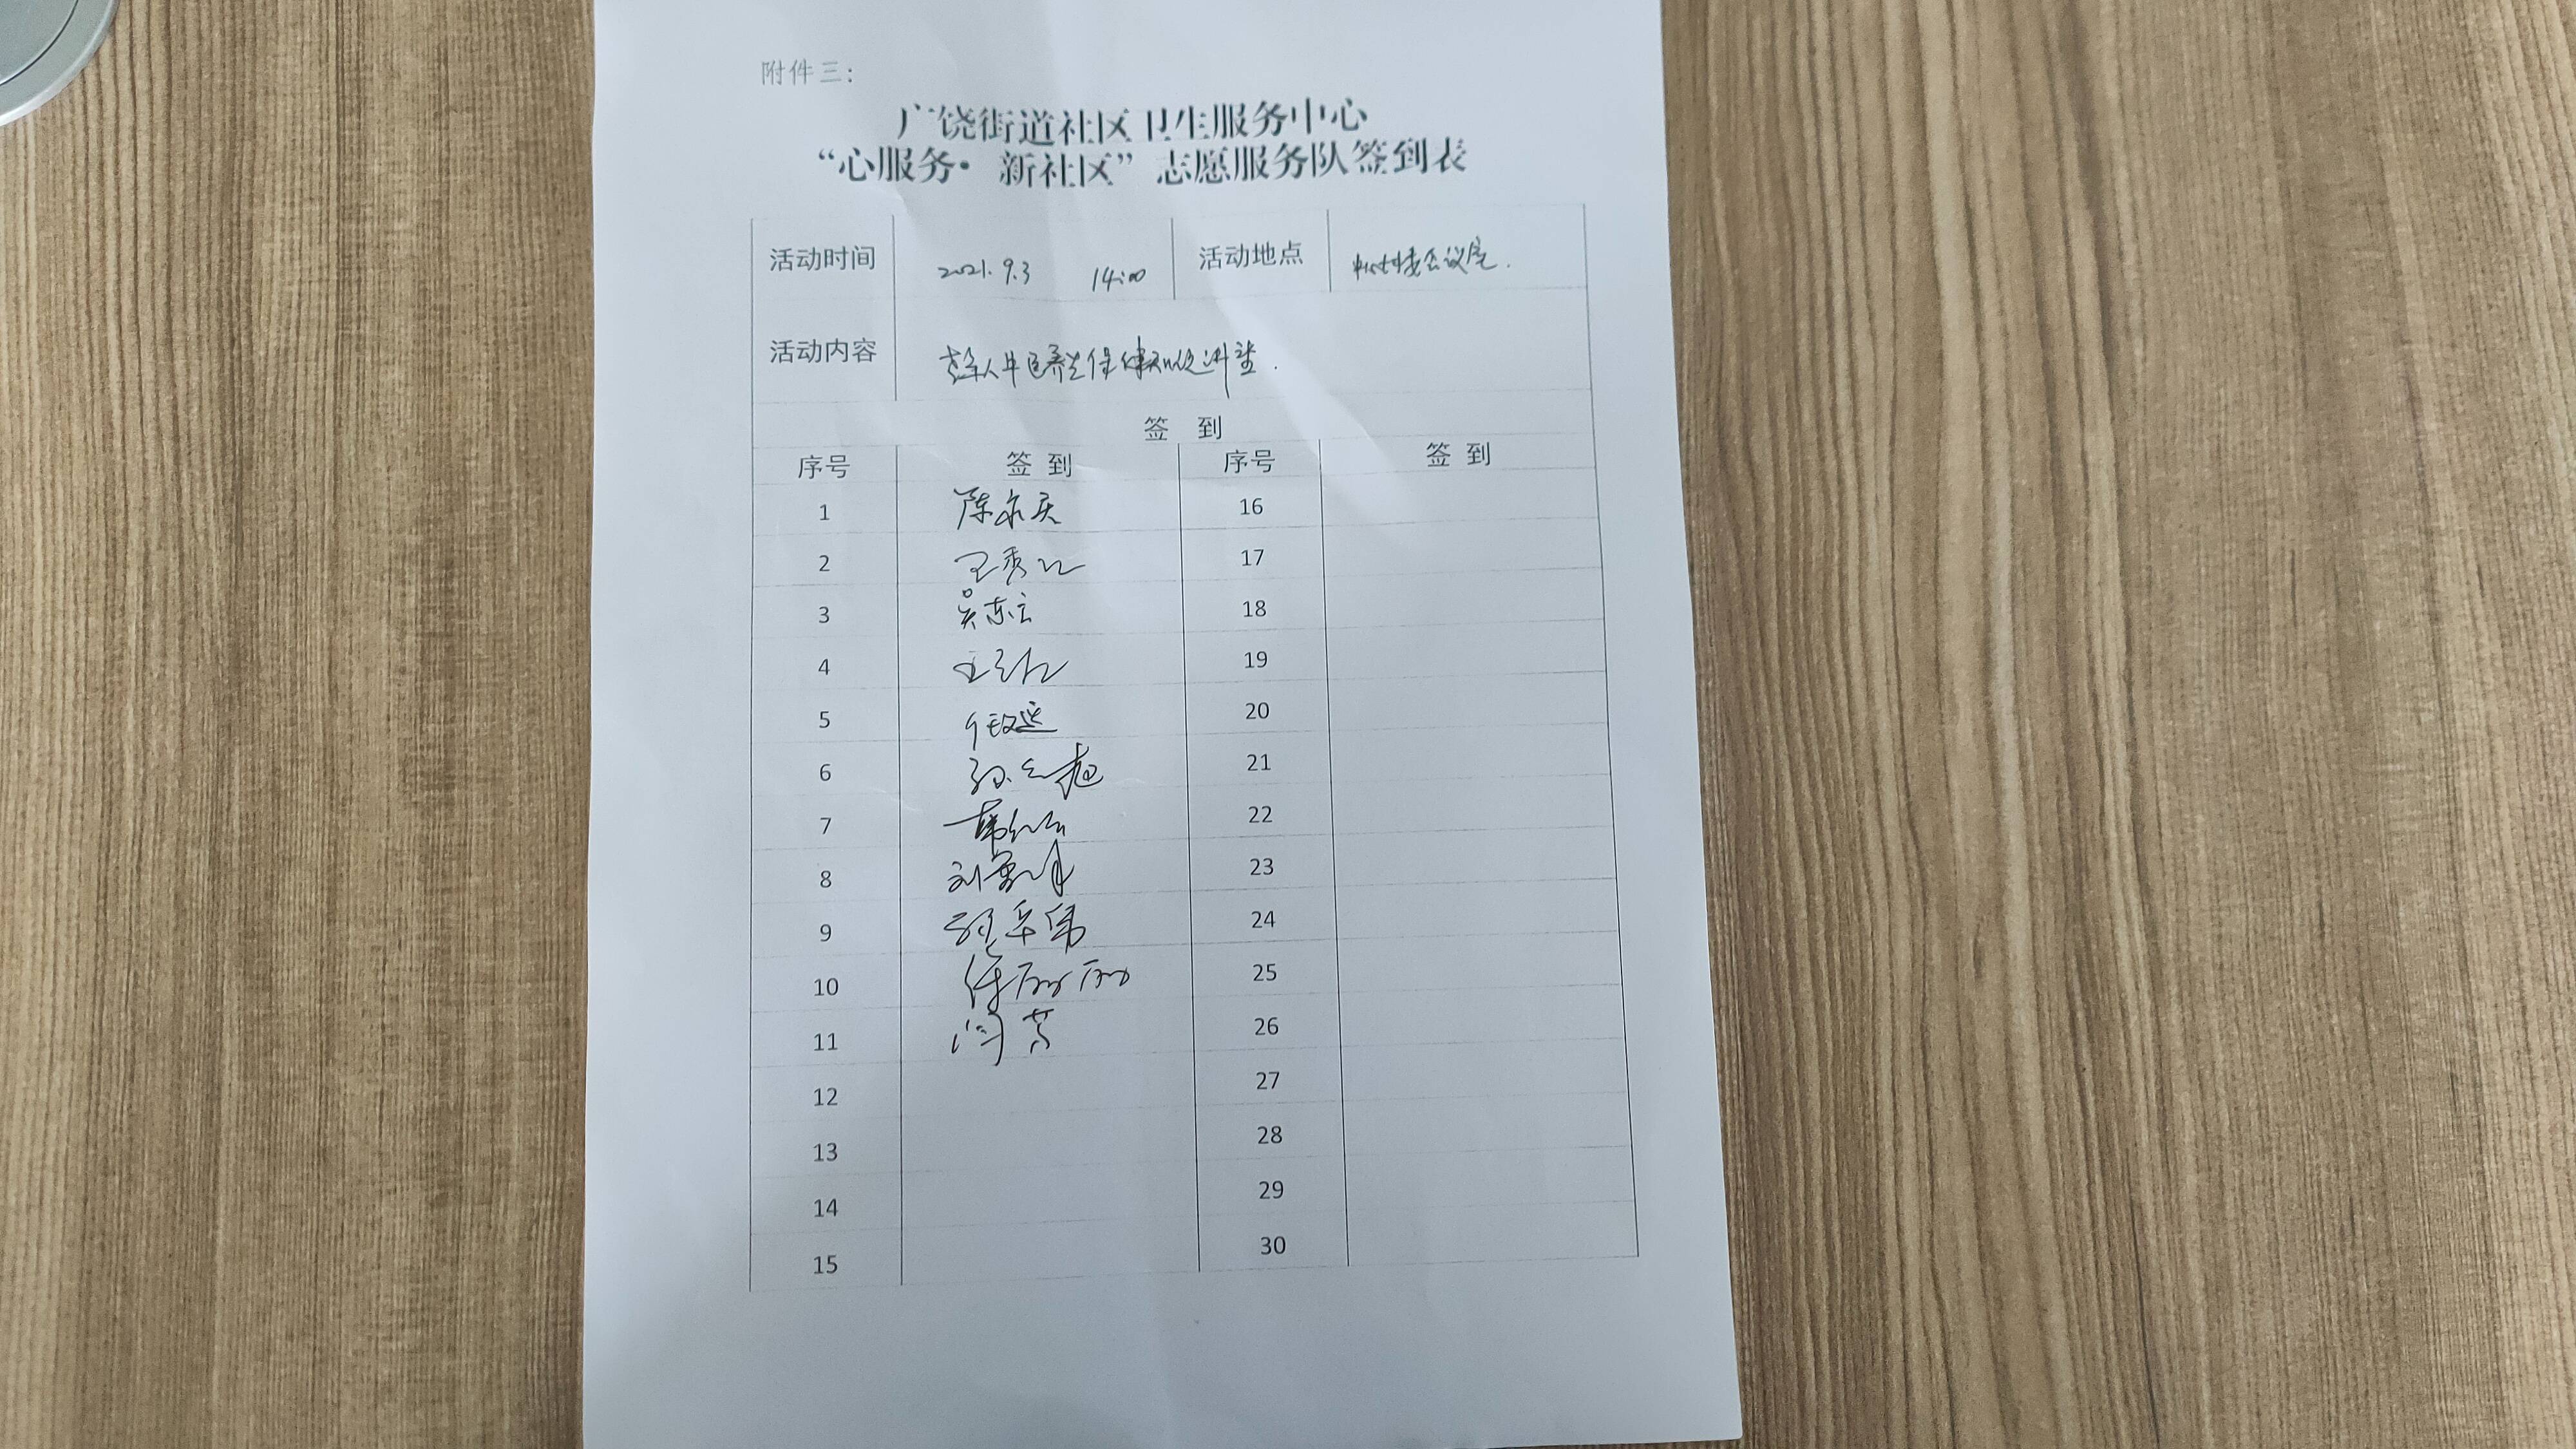 附件三：
广饶街道社区卫生服务中心
“心服务· 新社区”志愿服务队签到表
活动时间 2021.9.3 14:00 活动地点 会议室.
活动内容 老年人中医养生保健知识讲堂.
签 到
序号 签 到 序号 签 到
1 陈永庆 16
2 王秀江 17
3 吴东云 18
4 19
5 20
6 21
7 22
8 刘 23
9 24
10 任丽丽 25
11 闫芳 26
12 27
13 28
14 29
15 30